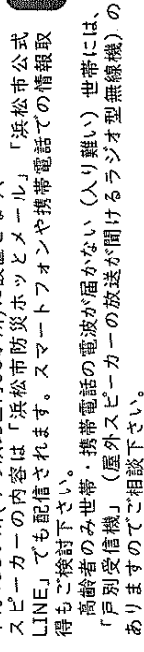 スピーカーの内容は「浜松市防災ホッとメール」「浜松市公式
LINE」でも配信されます。スマートフォンや携帯電話での情報取
得もご検討下さい。
高齢者のみ世帯・携帯電話の電波が届かない（入り難い）世帯には、
「戸別受信機」（屋外スピーカーの放送が聞けるラジオ型無線機）の
ありますのでご相談下さい。